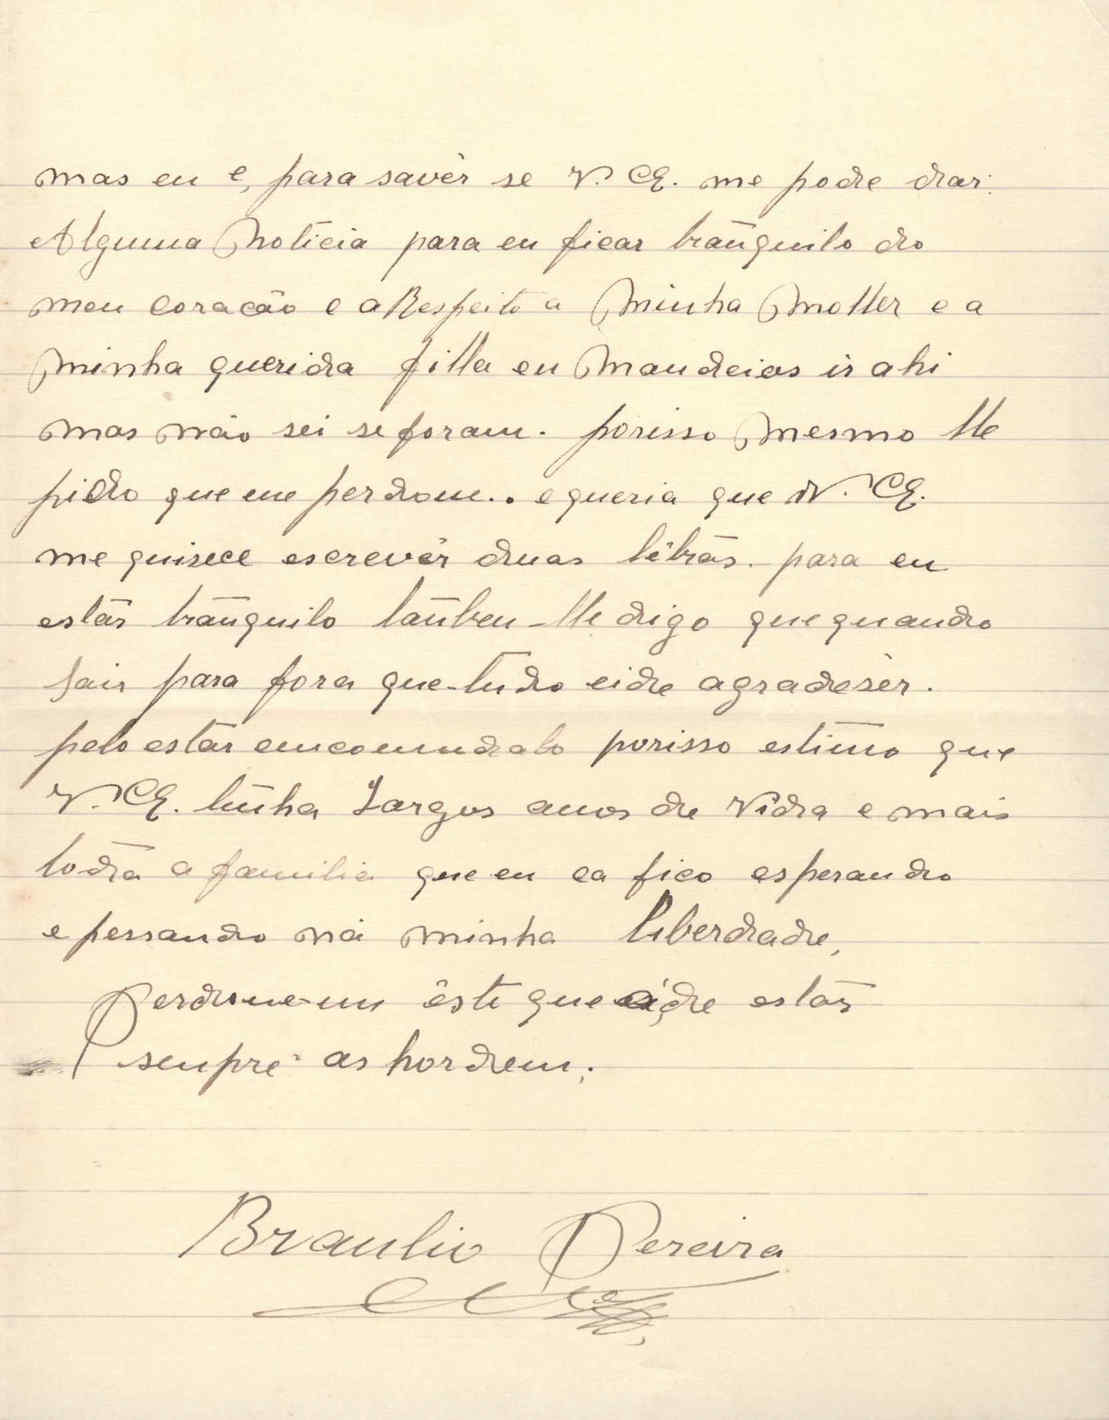 mas eu e, para savêr se V. Eª. me pode dar:
Alguma Notícia para eu ficar trãnquilo do
meu coracão e aRespeito a Minha Moller e a
Minha querida filla eu Mandeias ir ahi
mas não sei se foram. porisso Mesmo lle
pido que me perdom.. e queria que V. Eª.
me quisece escrevêr duas lêtras. para eu
estár trãnquilo tãnben lle digo que quando
sair para fora que tudo eide agradesêr.
pelo estár emcomendalo porisso estimo que
V. Eª. tinha Largos anos de Vida e mais
toda a familia que eu ca fico esperando
e penssando ná minha Liberdade,
Perdone-me êste que eide estár
senpre as hordem.
Braulio Pereira